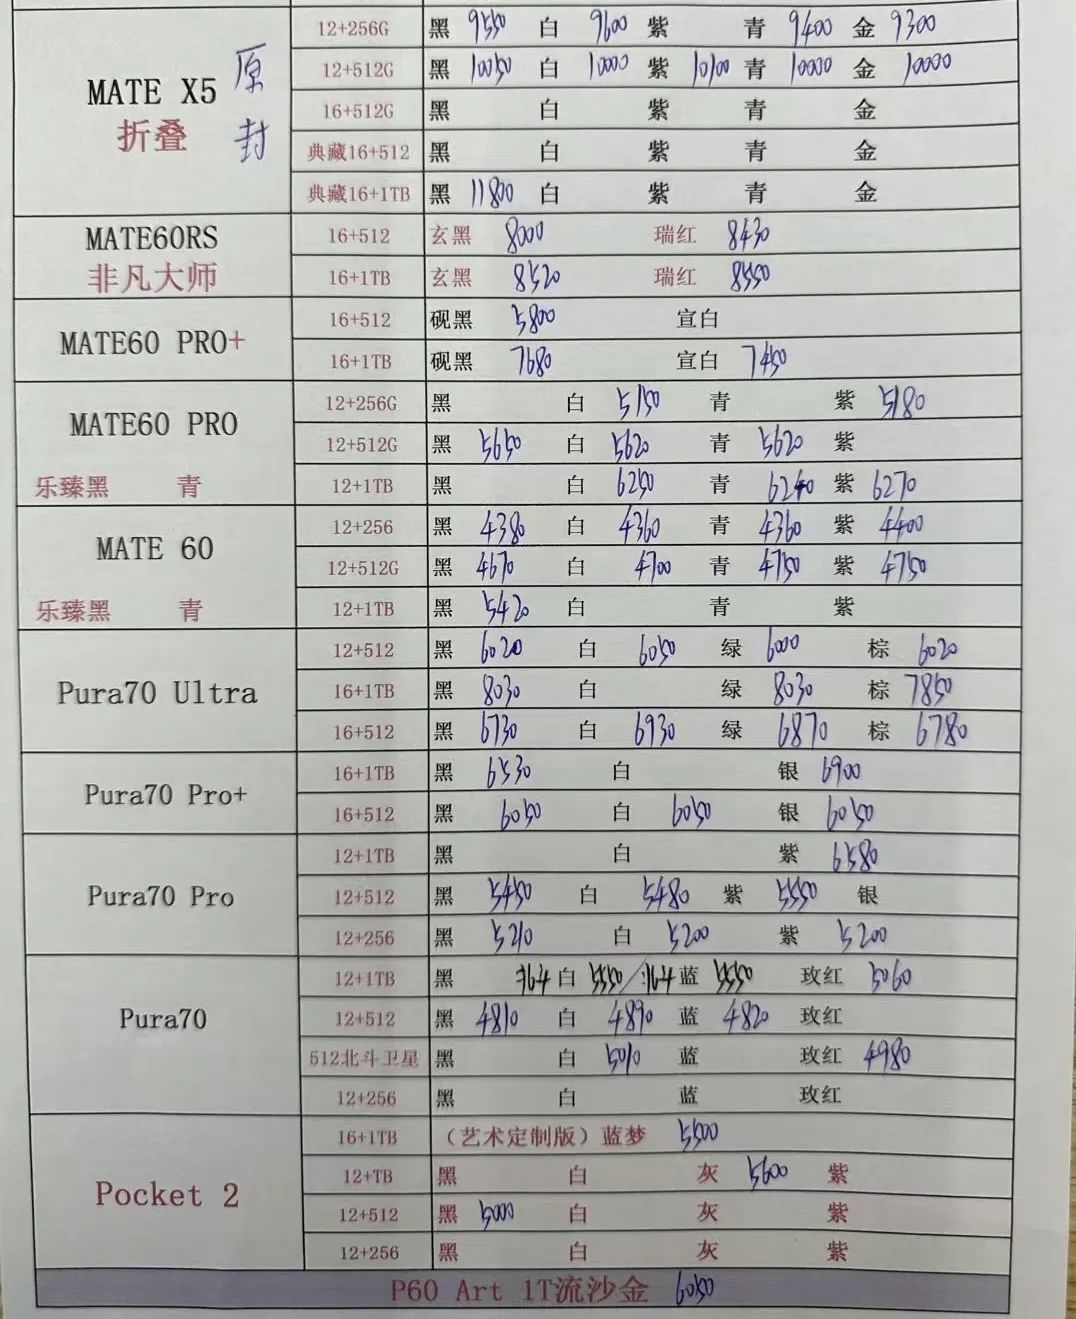 MATE X5 原封
折叠
12+256G 黑 9550 白 9600 紫 青 9400 金 9300
12+512G 黑 10050 白 10000 紫 10100 青 10000 金 10000
16+512G 黑 白 紫 青 金
典藏16+512 黑 白 紫 青 金
典藏16+1TB 黑 11800 白 紫 青 金
MATE60RS
非凡大师
16+512 玄黑 8000 瑞红 8430
16+1TB 玄黑 8520 瑞红 8550
MATE60 PRO+
16+512 砚黑 5800 宣白
16+1TB 砚黑 7680 宣白 7450
MATE60 PRO
乐臻黑 青
12+256G 黑 白 5150 青 紫 5180
12+512G 黑 5650 白 5620 青 5620 紫
12+1TB 黑 白 6250 青 6240 紫 6270
MATE 60
乐臻黑 青
12+256 黑 4380 白 4360 青 4360 紫 4400
12+512G 黑 4670 白 4700 青 4750 紫 4750
12+1TB 黑 5420 白 青 紫
Pura70 Ultra
12+512 黑 6020 白 6050 绿 6000 棕 6020
16+1TB 黑 8030 白 绿 8030 棕 7850
16+512 黑 6730 白 6930 绿 6870 棕 6780
Pura70 Pro+
16+1TB 黑 6530 白 银 6900
16+512 黑 6050 白 6050 银 6050
Pura70 Pro
12+1TB 黑 白 紫 6580
12+512 黑 5450 白 5480 紫 5550 银
12+256 黑 5210 白 5200 紫 5200
Pura70
12+1TB 黑 白 5550/ 蓝 5550 玫红 5060
12+512 黑 4810 白 4890 蓝 4820 玫红
512北斗卫星 黑 白 5010 蓝 玫红 4980
12+256 黑 白 蓝 玫红
Pocket 2
16+1TB (艺术定制版)蓝梦 5500
12+TB 黑 白 灰 5600 紫
12+512 黑 5000 白 灰 紫
12+256 黑 白 灰 紫
P60 Art 1T流沙金 6050